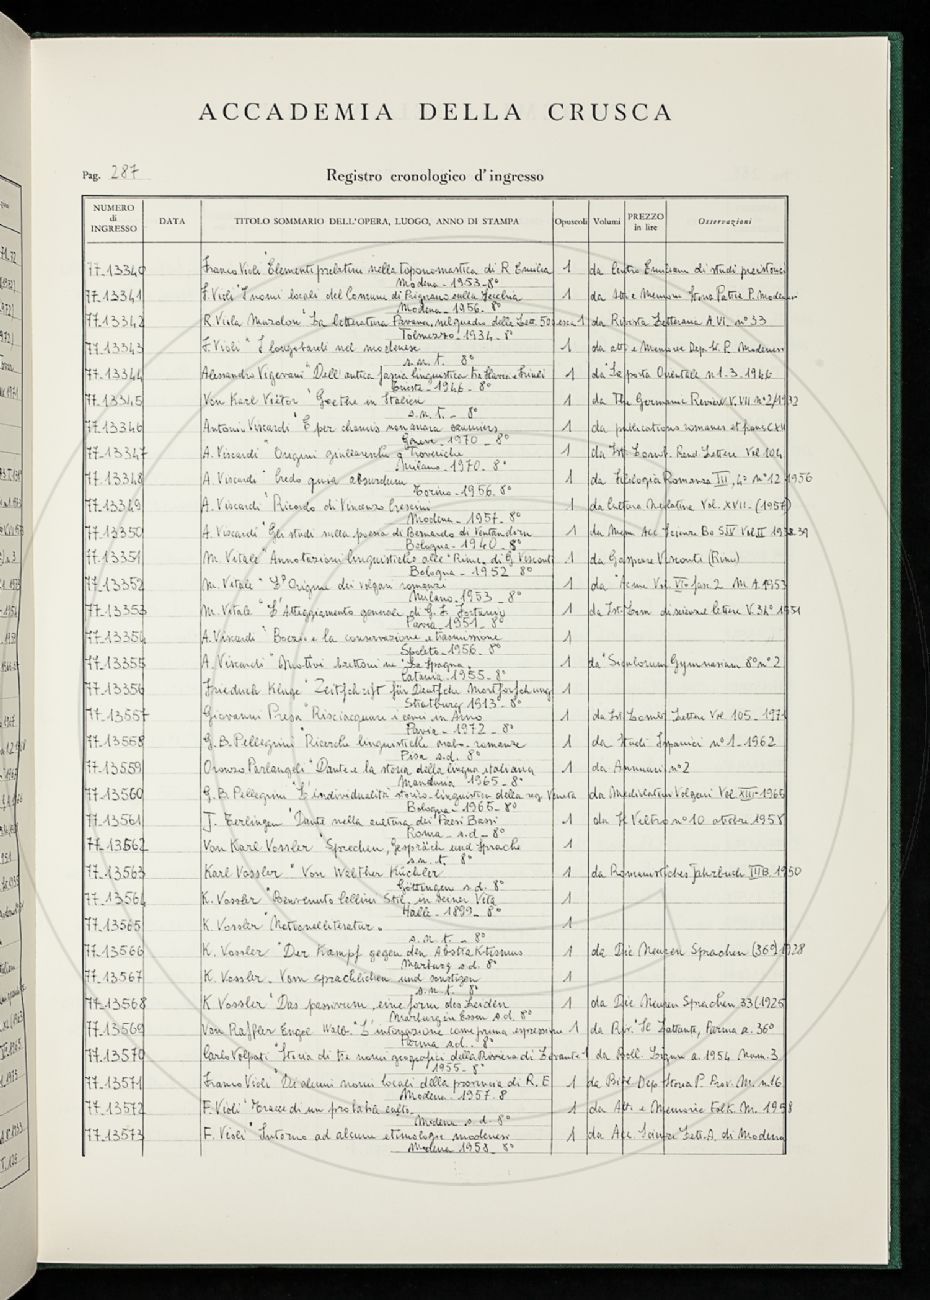 ACCADEMIA DELLA CRUSCA
Pag. 287
Registro cronologico d'ingresso
NUMERO di INGRESSO DATA TITOLO SOMMARIO DELL'OPERA, LUOGO, ANNO DI STAMPA Opuscoli Volumi PREZZO in lire Osservazioni
77-13340 Franco Violi "Elementi prelatini nella toponomastica di R. Emilia 1 da Centro Emiliano di studi
Modena - 1953 - 8°
77-13341 F. Violi "I nomi locali del Comune di Prignano sulla Secchia 1 da Atti e Memorie Storia Patria P. Modenesi
Modena - 1956. 8°
77-13342 R. Viola Marolon "La letteratura Pavana, nel quadro della Lett. 1 da Rivista Letteraria A.VI. n° 33
Tolmezzo - 1934 - 8°
77-13343 F. Violi "I longobardi nel modenese 1 da atti e Memorie Dep. St. P. Modenesi
s.n.t. 8°
77-13344 Alessandro Vigevani "Dell'antica linguistica tra Slavia e Friuli 1 da "La porta Orientale n. 1-3-1946
Trieste - 1946 - 8°
77-13345 Von Karl Viëtor "Goethe in Italien 1 da The Germanic Review V. VII n° 2/1932
s.n.t. - 8°
77-13346 Antonio Viscardi "E per chanso non ancora 1 da publications romanes et franc.
Genève - 1970 - 8°
77-13347 A. Viscardi "Origini giullaresche o troveriche 1 da Ist. Lomb. Rend. Lettere Vol. 104
Milano - 1970 - 8°
77-13348 A. Viscardi "Credo quia absurdum 1 da Filologia Romanza III, 4° n° 12 1956
Torino - 1956. 8°
77-13349 A. Viscardi "Ricordo di Vincenzo Crescini 1 da Cultura Neolatina Vol. XVII - (1957)
Modena - 1957. 8°
77-13350 A. Viscardi "Gli studi sulla poesia di Bernardo di Ventadorn 1 da Mem. Acc. Scienze Bo SIV Vol II 1938.39
Bologna - 1940 - 8°
77-13351 M. Vitale "Annotazioni linguistiche alle "Rime" di G. Visconti 1 da Gaspare Visconti (Rime)
Bologna - 1952 8°
77-13352 M. Vitale "L'Origine dei volgari romanzi 1 da "Acme Vol. VI - fasc. 2 M. A. 1953
Milano. 1953 - 8°
77-13353 M. Vitale "L'Atteggiamento generale di G. F. Fortunio 1 da Ist. Lom. di scienze lettere V. 34° 1951
Pavia - 1951 - 8°
77-13354 A. Viscardi "Boezio e la conservazione e trasmissione 1
Spoleto - 1956. 8°
77-13355 A. Viscardi "Motivi brettoni ne "La Spagna" 1 da "Siculorum Gymnasium 8° n° 2
Catania - 1955 - 8°
77-13356 Friedrich Kluge "Zeitschrift für Deutsche Wortforschung 1
Stratburg 1913 - 8°
77-13557 Giovanni Presa "Risciacquare i cenci in Arno 1 da Ist. Lomb. Lettere Vol. 105 - 1971
Pavia - 1972 - 8°
77-13558 G. B. Pellegrini "Ricerche linguistiche arabo-romanze 1 da Studi Ispanici n° 1 - 1962
Pisa s.d. 8°
77-13559 Oronzo Parlangeli "Dante e la storia della lingua italiana 1 da Annuari n° 2
Manduria 1965 - 8°
77-13560 G. B. Pellegrini "L'individualità storico-linguistica della reg. Veneta da Mediolatini Volgari Vol. XIII - 1965
Bologna - 1965 - 8°
77-13561 J. Terlingen "Dante nella cultura dei Paesi Bassi 1 da Il Veltro n° 10 ottobre 1958
Roma - s.d - 8°
77-13562 Von Karl Vossler "Sprechen, Gespräch und Sprache 1
s.n.t. 8°
77-13563 Karl Vossler "Von Walther Küchler 1 da Romanistisches Jahrbuch III B. 1950
Göttingen s.d. 8°
77-13564 K. Vossler "Benvenuto Cellinis Stil, in seiner Vita 1
Halle - 1899 - 8°
77-13565 K. Vossler "Nationalliteratur" 1
s.n.t. - 8°
77-13566 K. Vossler "Der Kampf gegen den Abstraktismus 1 da Die Neueren Sprachen (36°) 1928
Marburg s.d. 8°
77-13567 K. Vossler. Vom sprachlichen und sonstigen 1
s.n.t. 8°
77-13568 K. Vossler "Das passivum, eine form des Leidens 1 da Die Neueren Sprachen, 33 (1925)
Marburg in Essen s.d. 8°
77-13569 Von Raffler Engel Walb. "L'intonazione come prima espressione 1 da Riv. "Il Lattante, Parma a. 36°
Parma s.d. 8°
77-13570 Carlo Volpati "Storia di tre nomi geografici della Riviera di Levante 1 da Boll. Ligure a. 1954 Num. 3
1955 - 8°
77-13571 Franco Violi "Di alcuni nomi locali della provincia di R. E 1 da Bibl. Dep. Storia P. Prov. M. n. 16
Modena - 1957. 8
77-13572 F. Violi "Tracce di un probabile culto. 1 da Atti e Memorie Folk. M. 1958
Modena s.d. 8°
77-13573 F. Violi "Intorno ad alcune etimologie modenesi 1 da Acc. Scienze Lett. A. di Modena
Modena 1958 - 8°